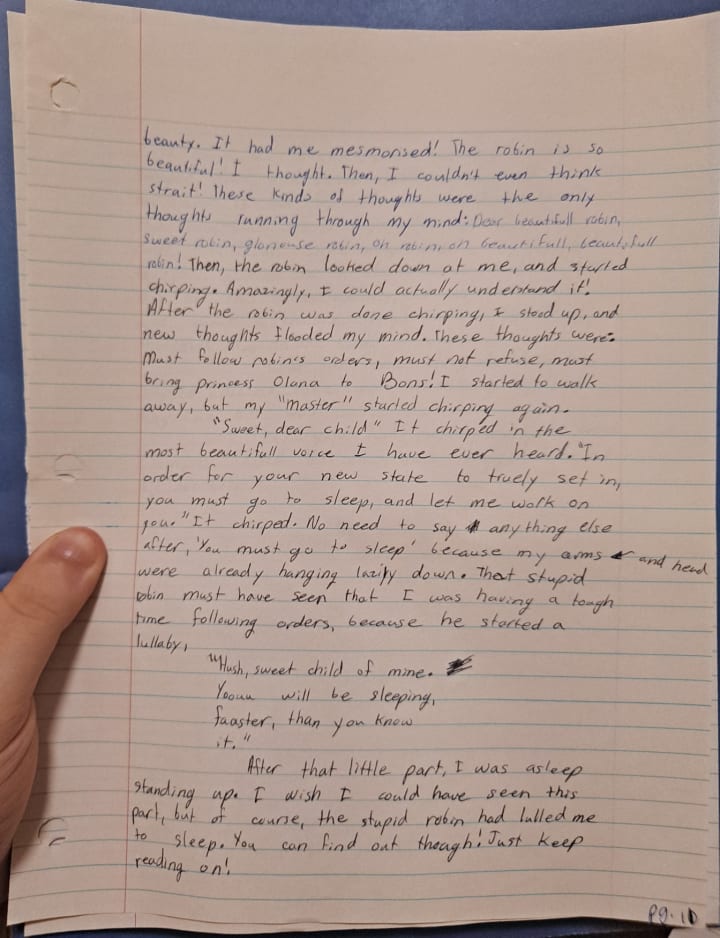 beauty. It had me mesmorised! The robin is so
beautiful! I thought. Then, I couldn't even think
strait! These kinds of thoughts were the only
thoughts running through my mind: Dear beautifull robin,
sweet robin, gloriouse robin, oh robin, oh beautifull, beautifull
robin! Then, the robin looked down at me, and started
chirping. Amazingly, I could actually understand it!
After the robin was done chirping, I stood up, and
new thoughts flooded my mind. These thoughts were:
Must follow robin's orders, must not refuse, must
bring princess Olana to Bons! I started to walk
away, but my "master" started chirping again.
"Sweet, dear child" It chirped in the
most beautifull voice I have ever heard. "In
order for your new state to truely set in,
you must go to sleep, and let me work on
you." It chirped. No need to say anything else
after, 'You must go to sleep' because my arms and head
were already hanging lazily down. That stupid
robin must have seen that I was having a tough
time following orders, because he started a
lullaby,
"Hush, sweet child of mine.
Yoouu will be sleeping,
faaster, than you know
it."
After that little part, I was asleep
standing up. I wish I could have seen this
part, but of course, the stupid robin had lulled me
to sleep. You can find out though! Just keep
reading on!
pg. 10